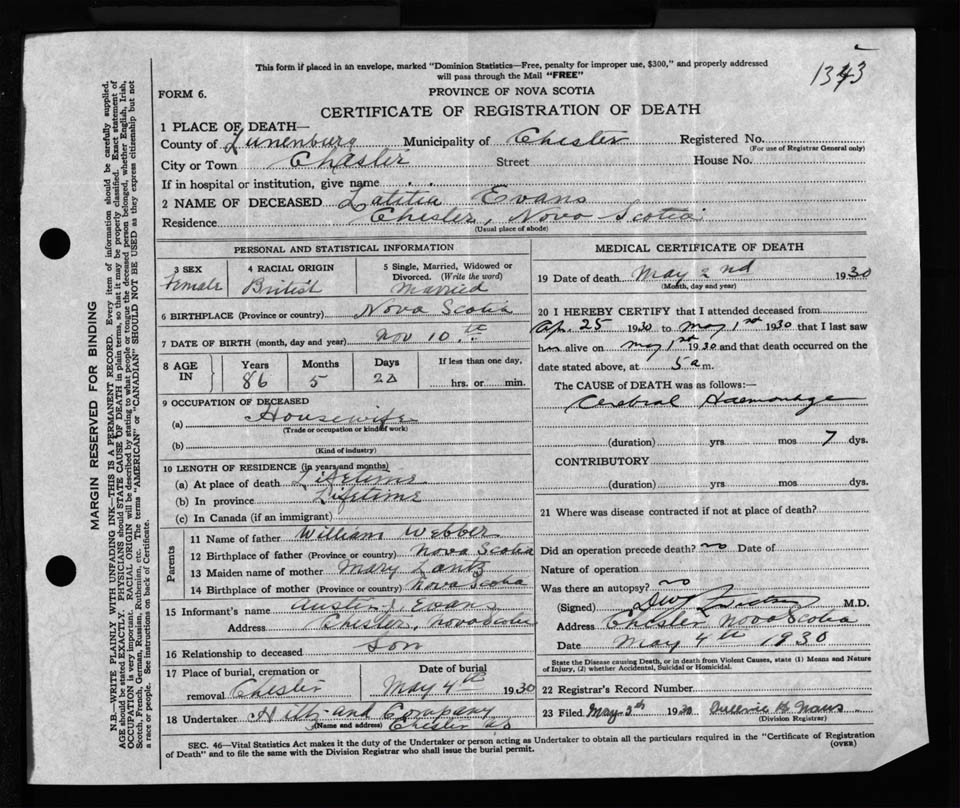 This form if placed in an envelope, marked "Dominion Statistics—Free, penalty for improper use, $300," and properly addressed
will pass through the Mail "FREE"
1343
FORM 6.
PROVINCE OF NOVA SCOTIA
CERTIFICATE OF REGISTRATION OF DEATH
1 PLACE OF DEATH—
County of Lunenburg Municipality of Chester Registered No.
(For use of Registrar General only)
City or Town Chester Street House No.
If in hospital or institution, give name
2 NAME OF DECEASED Latitia Evans
Residence Chester, Nova Scotia
(Usual place of abode)
PERSONAL AND STATISTICAL INFORMATION
3 SEX 4 RACIAL ORIGIN 5 Single, Married, Widowed or
Divorced. (Write the word)
Female British Married
6 BIRTHPLACE (Province or country) Nova Scotia
7 DATE OF BIRTH (month, day and year) Nov 10th
8 AGE IN Years Months Days If less than one day,
86 5 22 hrs. or min.
9 OCCUPATION OF DECEASED
(a) Housewife
(Trade or occupation or kind of work)
(b)
(Kind of industry)
10 LENGTH OF RESIDENCE (in years and months)
(a) At place of death Lifetime
(b) In province Lifetime
(c) In Canada (if an immigrant)
Parents
11 Name of father William Webber
12 Birthplace of father (Province or country) Nova Scotia
13 Maiden name of mother Mary Lantz
14 Birthplace of mother (Province or country) Nova Scotia
15 Informant's name Austin Evans
Address Chester, Nova Scotia
16 Relationship to deceased Son
17 Place of burial, cremation or Date of burial
removal Chester May 4th 1930
18 Undertaker Hiltz and Company
(Name and address) Chester NS
MEDICAL CERTIFICATE OF DEATH
19 Date of death May 2nd 1930
(Month, day and year)
20 I HEREBY CERTIFY that I attended deceased from
Ap. 25 1930 to May 1st 1930 that I last saw
her alive on May 1st 1930 and that death occurred on the
date stated above, at 5 a m.
The CAUSE of DEATH was as follows:—
Cerebral Haemorrage
(duration) yrs. mos 7 dys.
CONTRIBUTORY
(duration) yrs. mos. dys.
21 Where was disease contracted if not at place of death?
Did an operation precede death? no Date of
Nature of operation
Was there an autopsy? no
(Signed) M.D.
Address Chester Nova Scotia
Date May 4th 1930
State the Disease causing Death, or in death from Violent Causes, state (1) Means and Nature
of Injury, (2) whether Accidental, Suicidal or Homicidal.
22 Registrar's Record Number
23 Filed May 5th 1930
(Division Registrar)
SEC. 46—Vital Statistics Act makes it the duty of the Undertaker or person acting as Undertaker to obtain all the particulars required in the "Certificate of Registration
of Death" and to file the same with the Division Registrar who shall issue the burial permit.
(OVER)
MARGIN RESERVED FOR BINDING
N.B.—WRITE PLAINLY WITH UNFADING INK—THIS IS A PERMANENT RECORD. Every item of information should be carefully supplied.
AGE should be stated EXACTLY. PHYSICIANS should STATE CAUSE OF DEATH in plain terms, so that it may be properly classified. Exact statement of
OCCUPATION is very important. RACIAL ORIGIN will be described by stating to what people or tongue the deceased person belonged, whether English, Irish,
Scotch, French, German, Russian, Ruthenian, etc. The terms "AMERICAN" or "CANADIAN" SHOULD NOT BE USED as they express citizenship but not
a race or people. See instructions on back of Certificate.